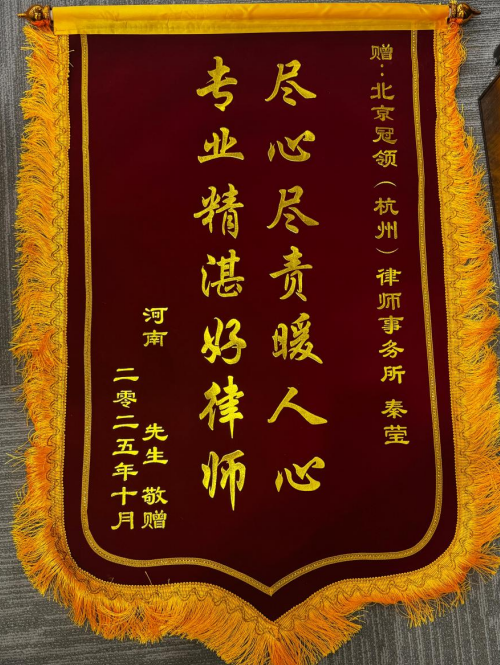 赠：北京冠领（杭州）律师事务所 秦莹
尽心尽责暖人心
专业精湛好律师
河南 先生 敬赠
二零二五年十月